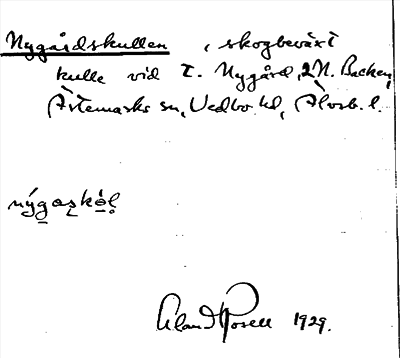 Nygårdskullen, skogbeväxt
kulle vid t. Nygård, 2 N. Backen,
Ärtemarks sn, Vedbo hd, Älvsb. l.
nýgaʂkol̥
Rosell 1929.